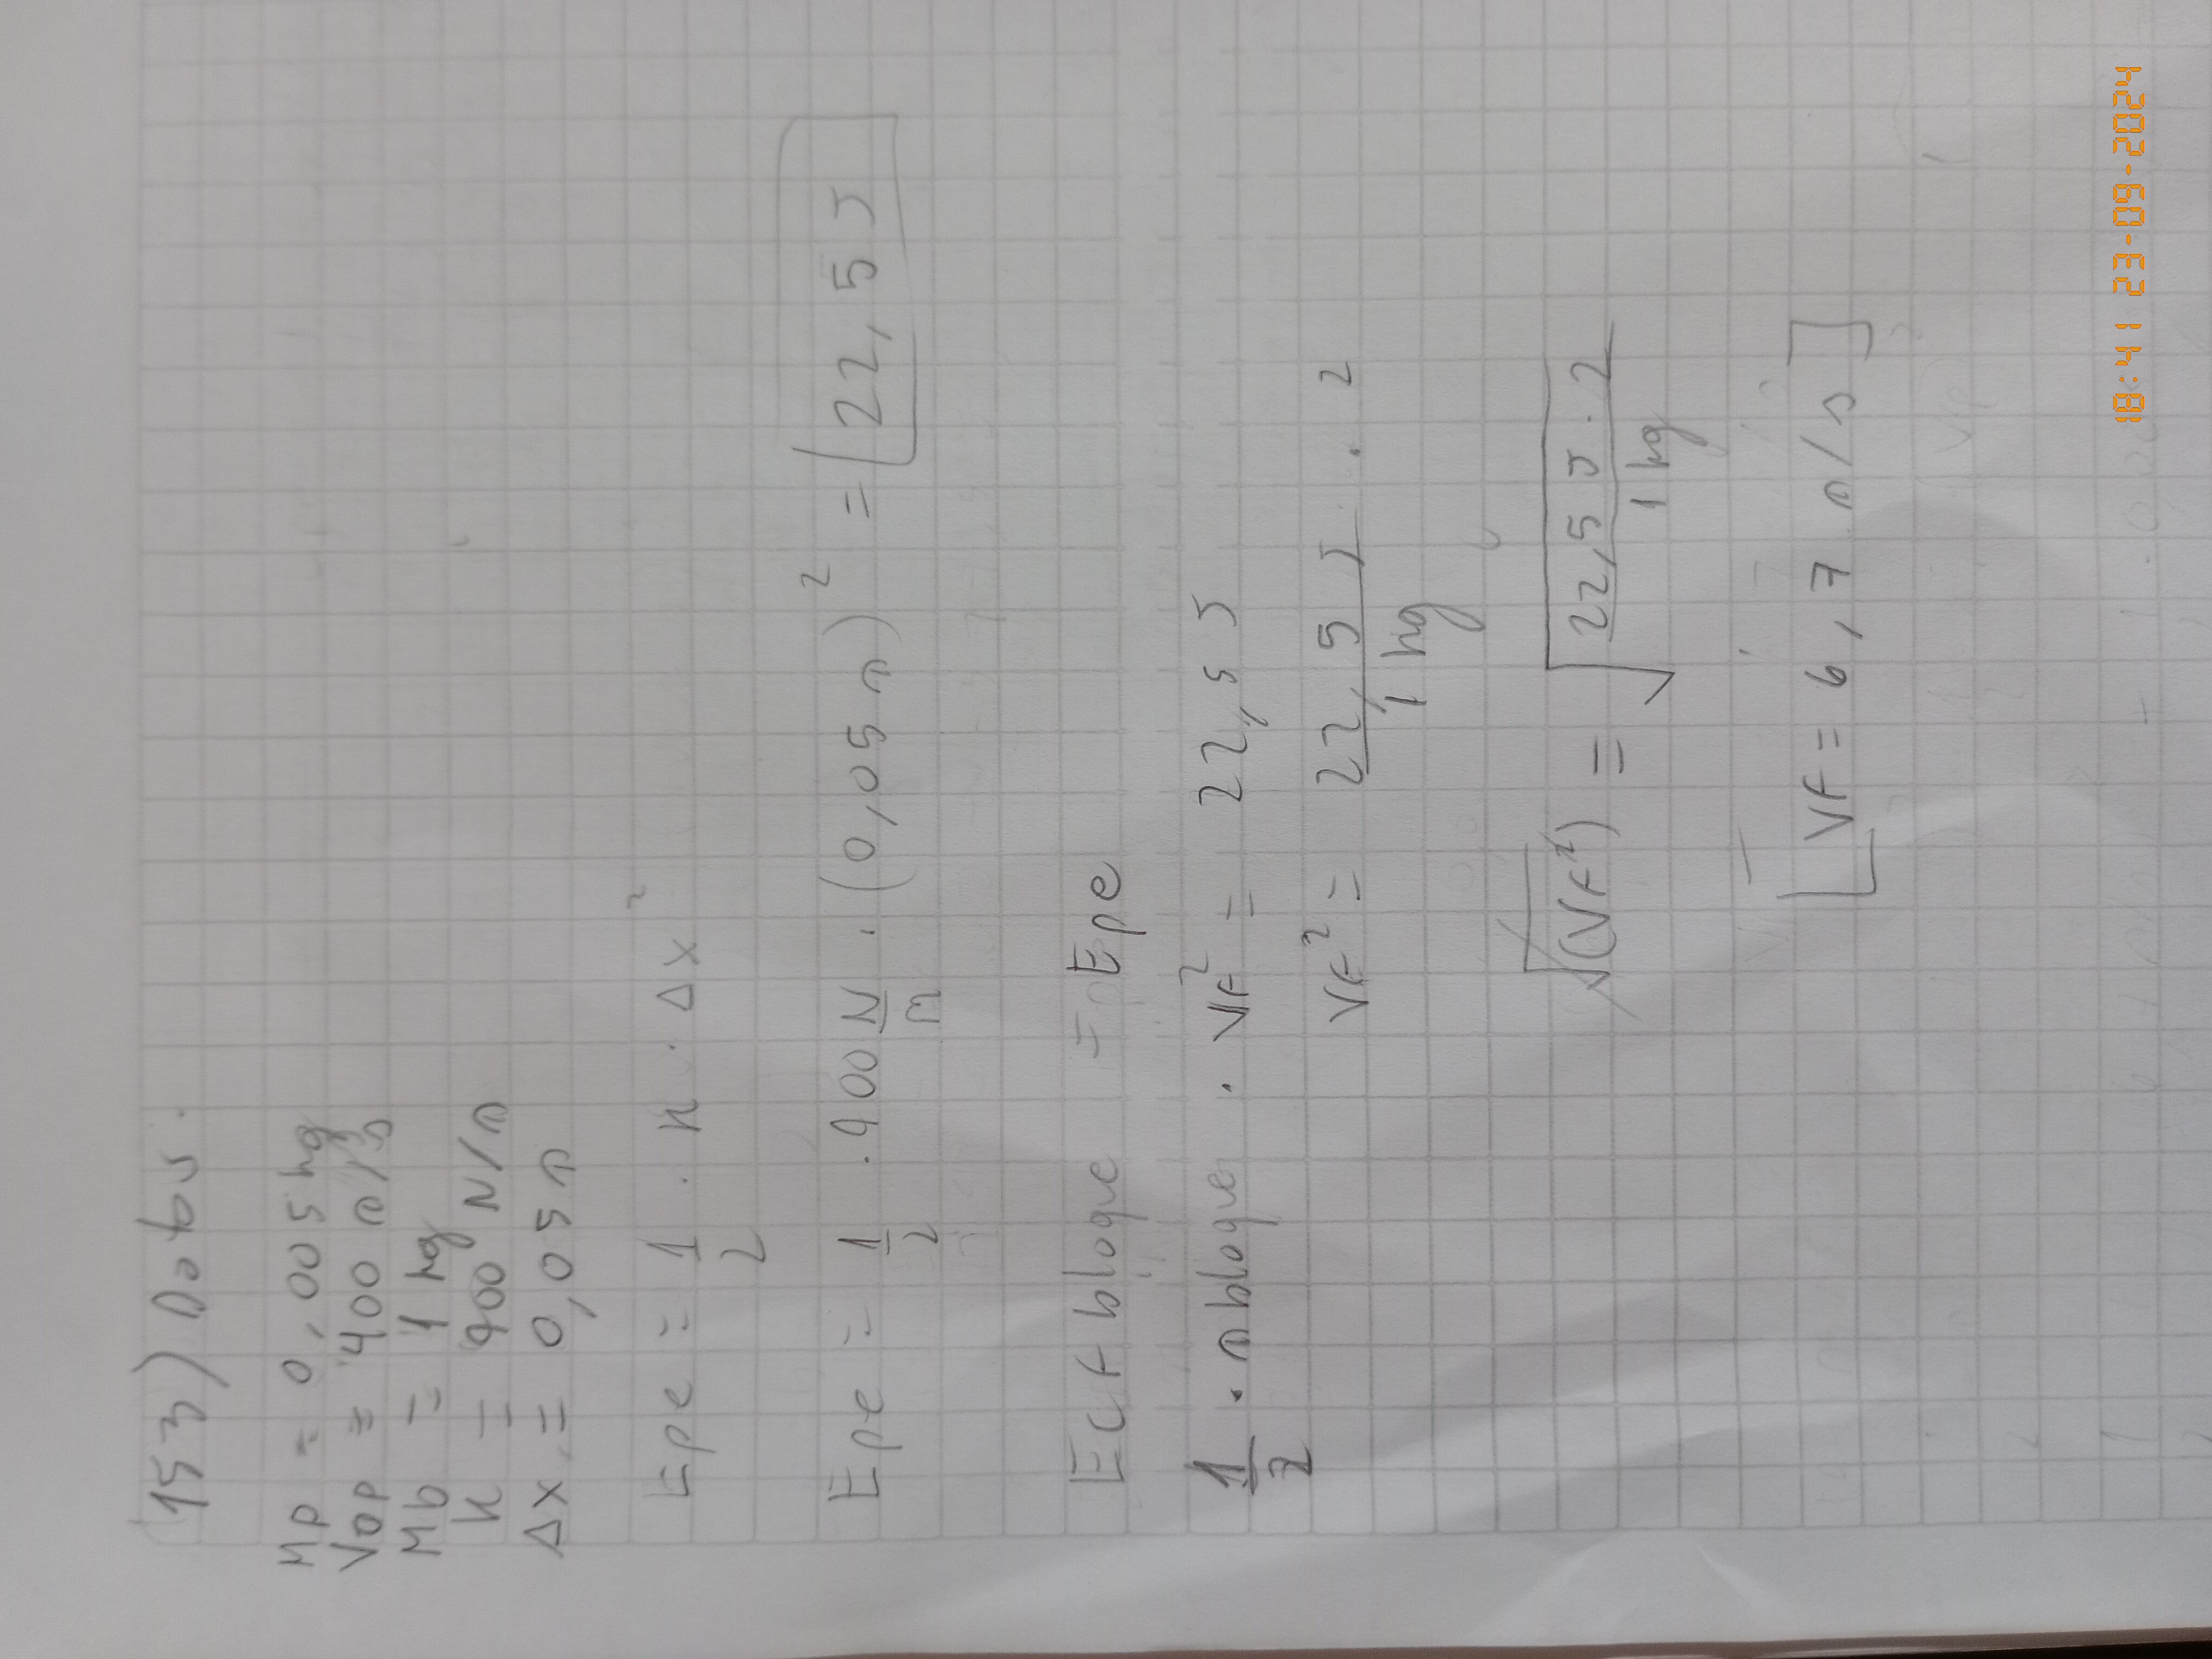 153) Datos:
Mp = 0,005 kg
Vop = 400 m/s
Mb = 1 kg
K = 900 N/m
Δx = 0,05 m
Epe = 1/2 . K . Δx²
Epe = 1/2 . 900 N/m . (0,05 m)² = 22,5 J
EcF bloque = Epe
1/2 . mbloque . VF² = 22,5 J
VF² = 22,5 J / 1 kg . 2
√(VF²) = √(22,5 J . 2 / 1 kg)
[VF = 6,7 m/s]
18:41 23-09-2024